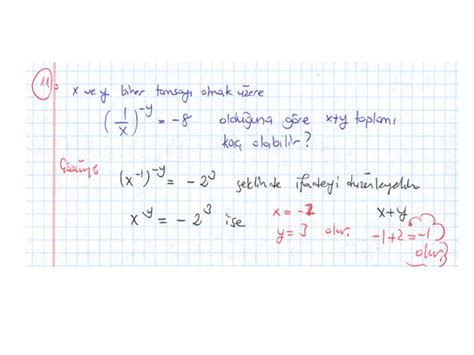 11.
x ve y birer tamsayı olmak üzere
(1/x)^-y = -8 olduğuna göre x+y toplamı
kaç olabilir?
Çözüm:
(x^-1)^-y = -2^3 şeklinde ifadeyi düzenleyelim
x^y = -2^3 ise x = -2 x+y
y = 3 olur. -1+2 = -1
olur.